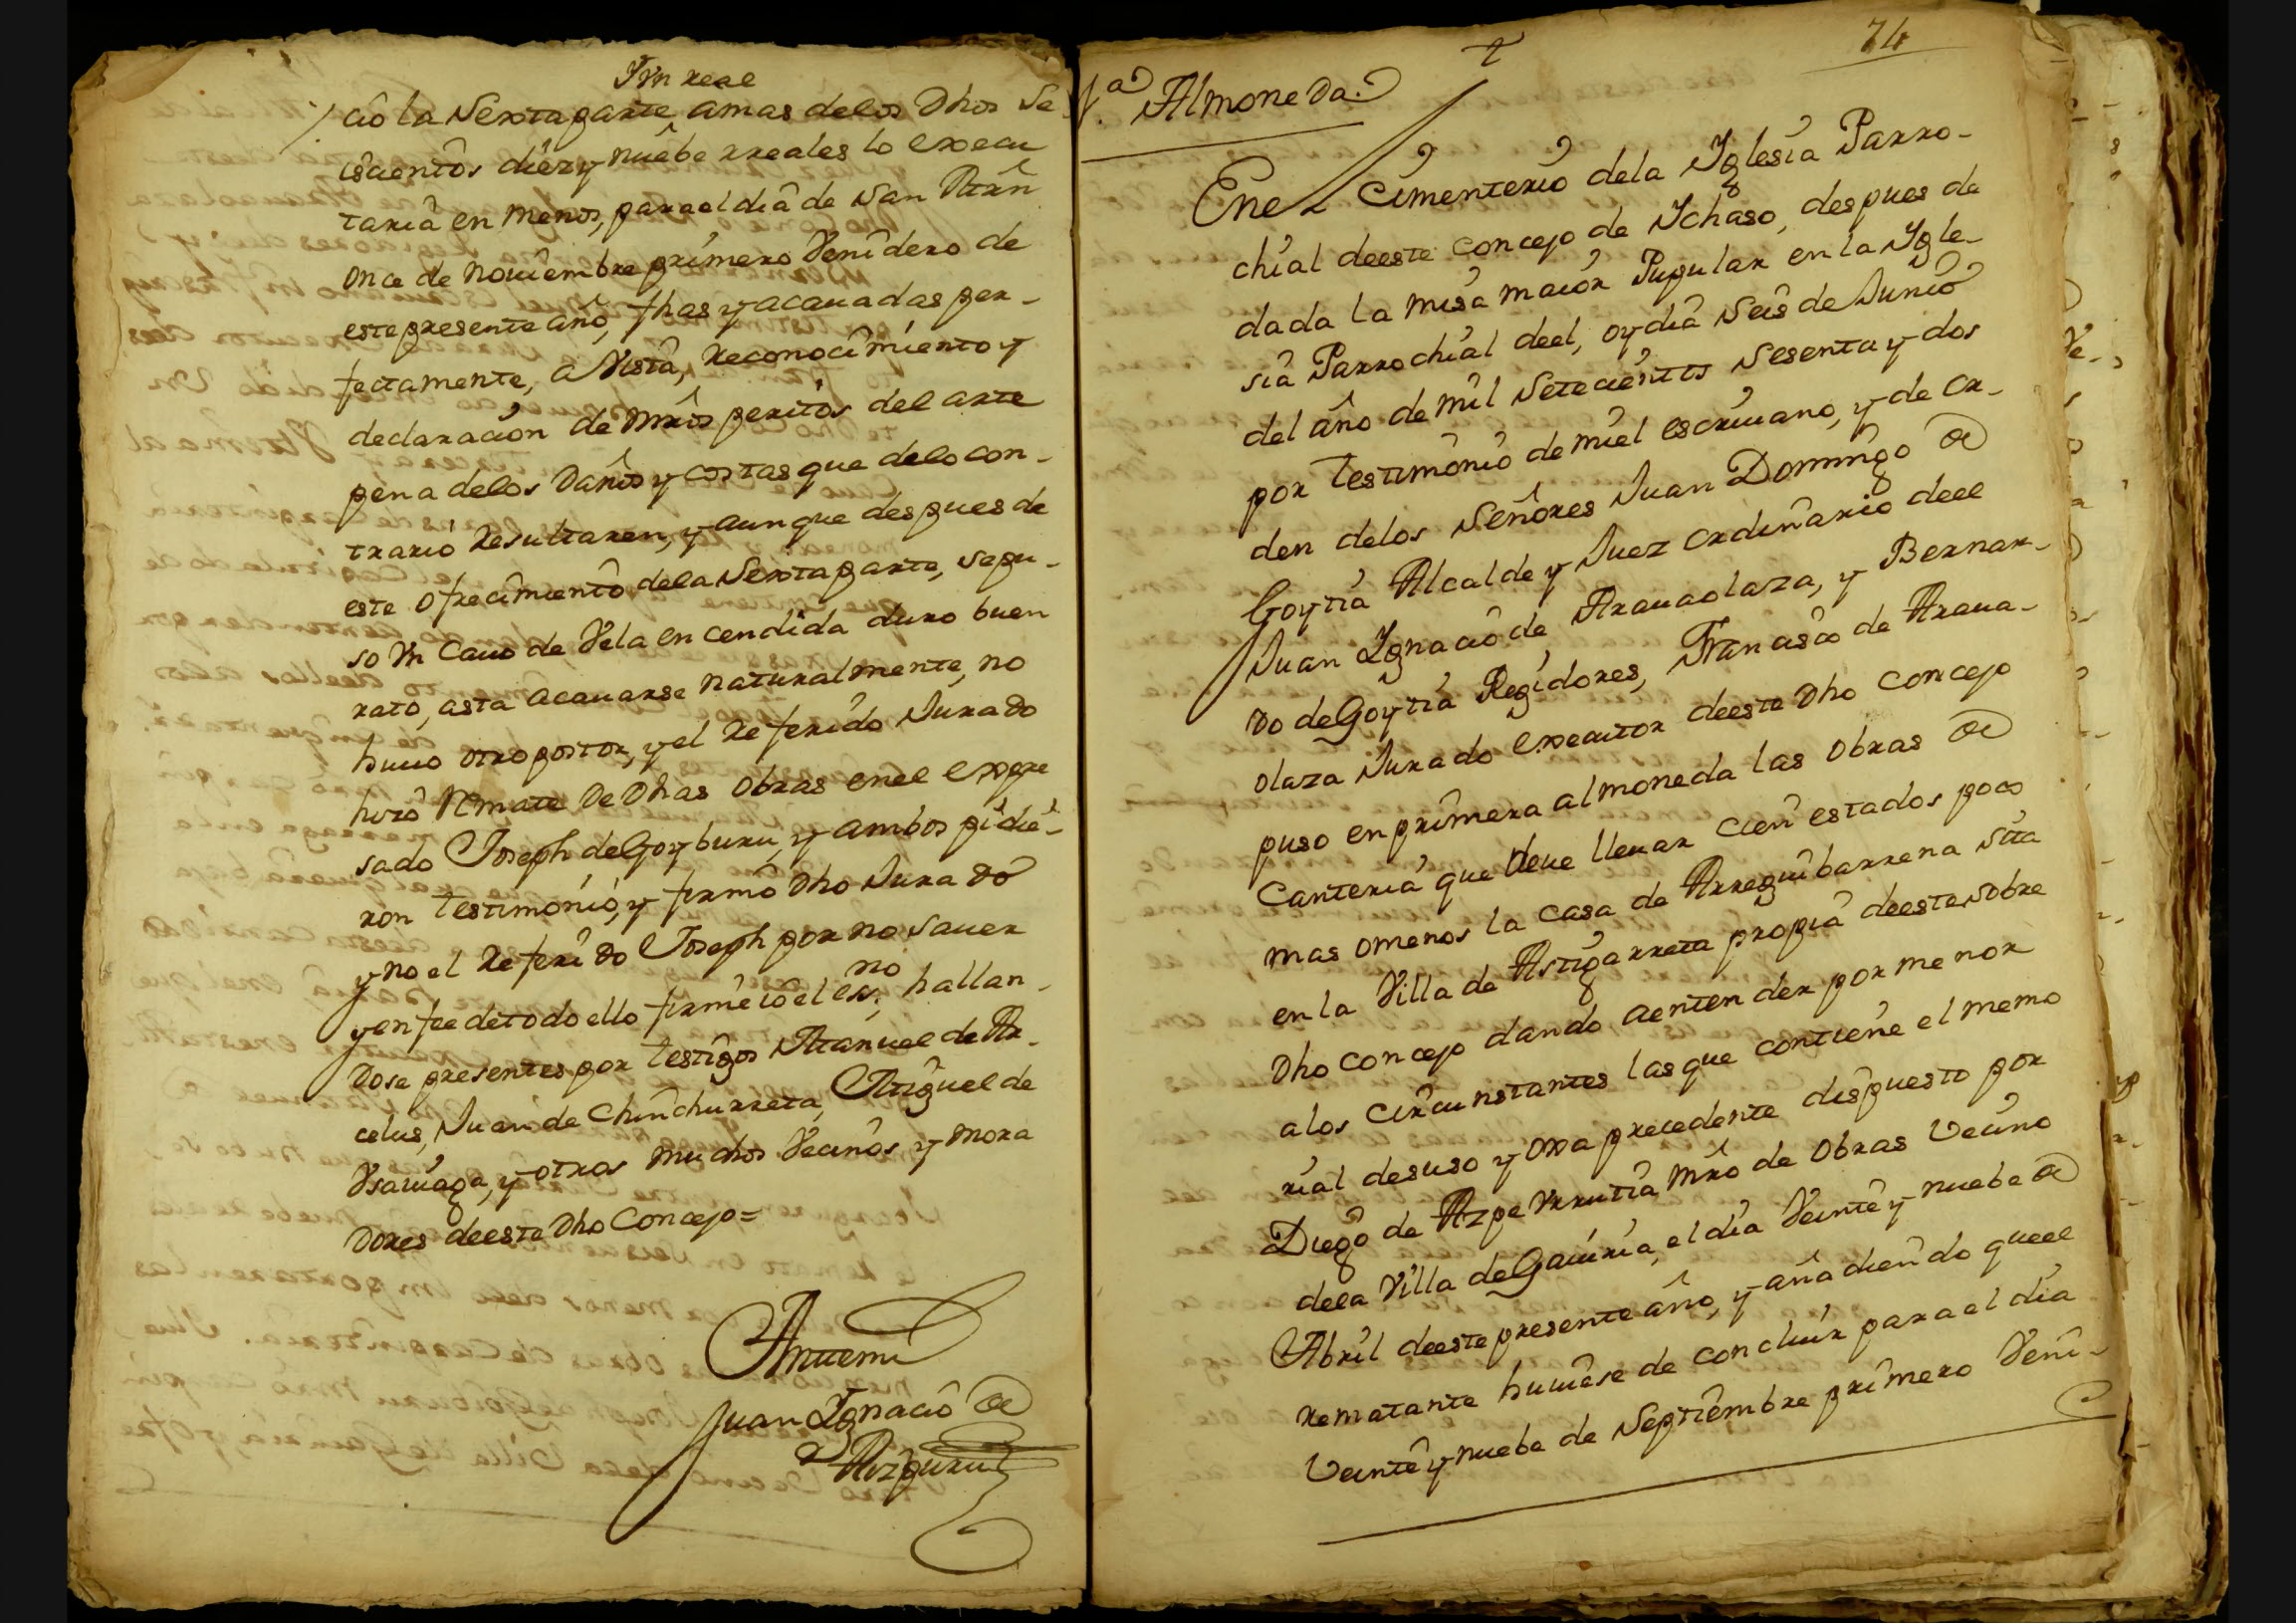 Un real
cio la Sexta parte amas delos Dhos Se
iscientos diez y nuebe rreales lo execu
taria en menos, para el dia de San Mrñ
once de Nouiembre primero Venidero de
este presente año, fhas y acauadas per-
fectamente, a Vista, Reconocimiento y
declaracion de Mrõs peritos del arte
pena delos Daños y costas que delo con-
trario Resultaren, y aunque despues de
este ofrecimiento dela Sexta parte, se pu-
so Vn Cauo de Vela encendida duro buen
rato, asta acauarse naturalmente, no
huuo otro postor, y el Referido Jurado
hizo Remate De Dhas Obras en el expre
sado Joseph de Goyburu, y ambos pidie-
ron testimonio, y firmó Dho Jurado
y no el Referido Joseph por no Sauer
y en fee de todo ello firme io el esno. hallan-
dose presentes por testigos Manuel de Ar-
celus, Juan de Chinchurreta, Miguel de
Vsauiaga, y otros muchos Vecinos y Mora
dores deeste Dho Concejo=
Antemi
Juan Ignacio de
Aizpuru
74
1.a Almoneda.
En el Cimenterio dela Yglesia Parro-
chial deeste concejo de Ychaso, despues de
dada la misa maior Pupular en la Ygle-
sia Parrochial deel, oy dia Seis de Junio
del año de mil Setecientos Sesenta y dos
por testimonio de miel escriuano, y de or-
den delos Señores Juan Domingo de
Goytia Alcalde y Juez ordinario deel
Juan Ignacio de Arauaolaza, y Bernar-
do de Goytia Regidores, Francisco de Araua-
olaza Jurado executor deeste Dho Concejo
puso en primera almoneda las obras de
Canteria que deue lleuar cien estados poco
mas omenos la casa de Arreguibarrena sita
en la Villa de Astigarreta propia deeste sobre
Dho Concejo dando aentender por menor
alos circunstantes las que contiene el memo
rial desuso y oxa precedente dispuesto por
Diego de Azpe Vrrutia Mrõ de Obras Vecino
dela Villa de Gauiria, el dia Veinte y nuebe de
Abril deeste presente año, y añadiendo queel
rematante huuiese de concluir para el dia
Veinte y nuebe de Septiembre primero Veni-